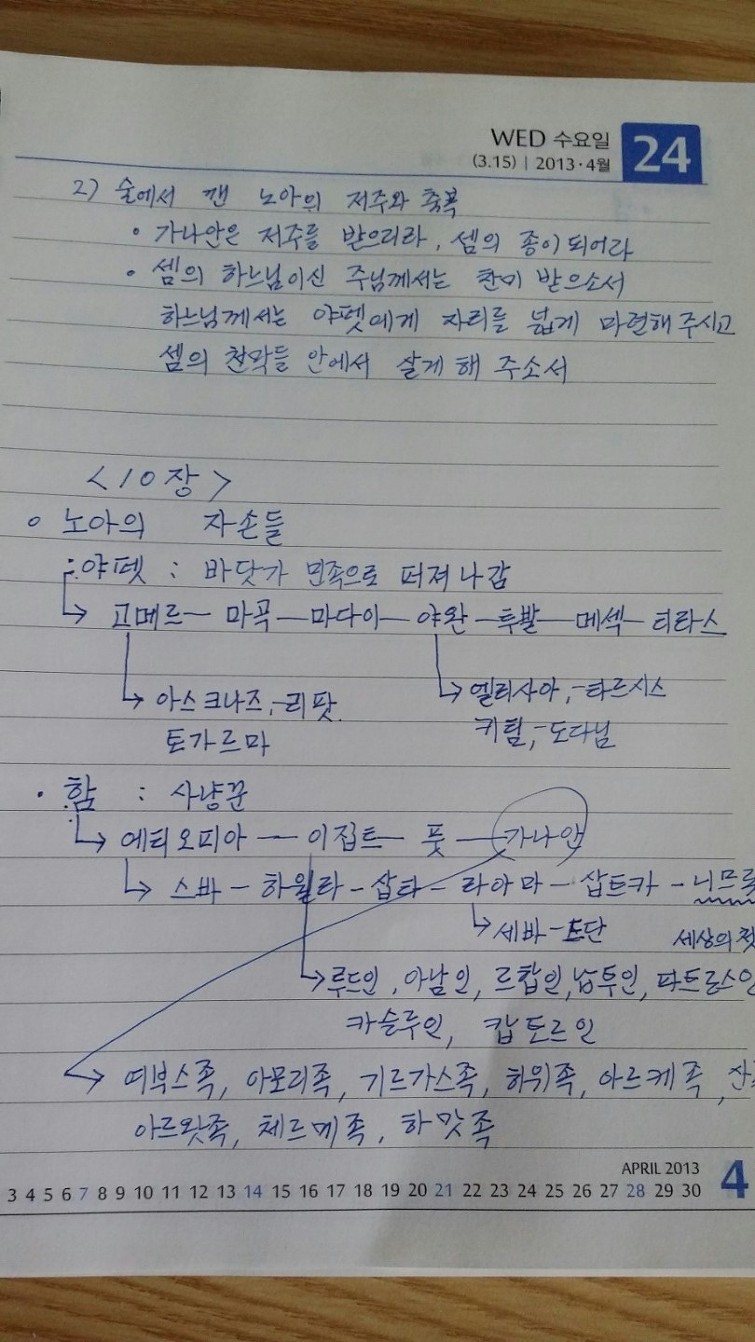 WED 수요일
(3.15) | 2013·4월
24
2) 술에서 깬 노아의 저주와 축복
• 가나안은 저주를 받으리라, 셈의 종이 되어라
• 셈의 하느님이신 주님께서는 찬미 받으소서
하느님께서는 야펫에게 자리를 넓게 마련해 주시고
셈의 천막들 안에서 살게 해 주소서
<10장>
○ 노아의 자손들
:야펫 : 바닷가 민족으로 퍼져 나감
↳ 고메르 — 마곡 — 마다이 — 야완 — 투발 — 메섹 — 티라스
↳ 아스크나즈, - 리팟
↳ 엘리사아, - 타르시스
토가르마
키팀, - 도다님
• 함 : 사냥꾼
↳ 에티오피아 — 이집트 — 풋 — 가나안
↳ 스바 - 하윌라 - 삽타 - 라아마 - 삽트카 - 니므롯
↳ 세바 - 드단
세상의 첫
↳ 루드인, 아남인, 르합인, 납투인, 파트로스인
카슬루인, 캅토르인
→ 여부스족, 아모리족, 기르가스족, 하위족, 아르케족,
아르왓족, 체르메족, 하맛족
APRIL 2013
3 4 5 6 7 8 9 10 11 12 13 14 15 16 17 18 19 20 21 22 23 24 25 26 27 28 29 30
4